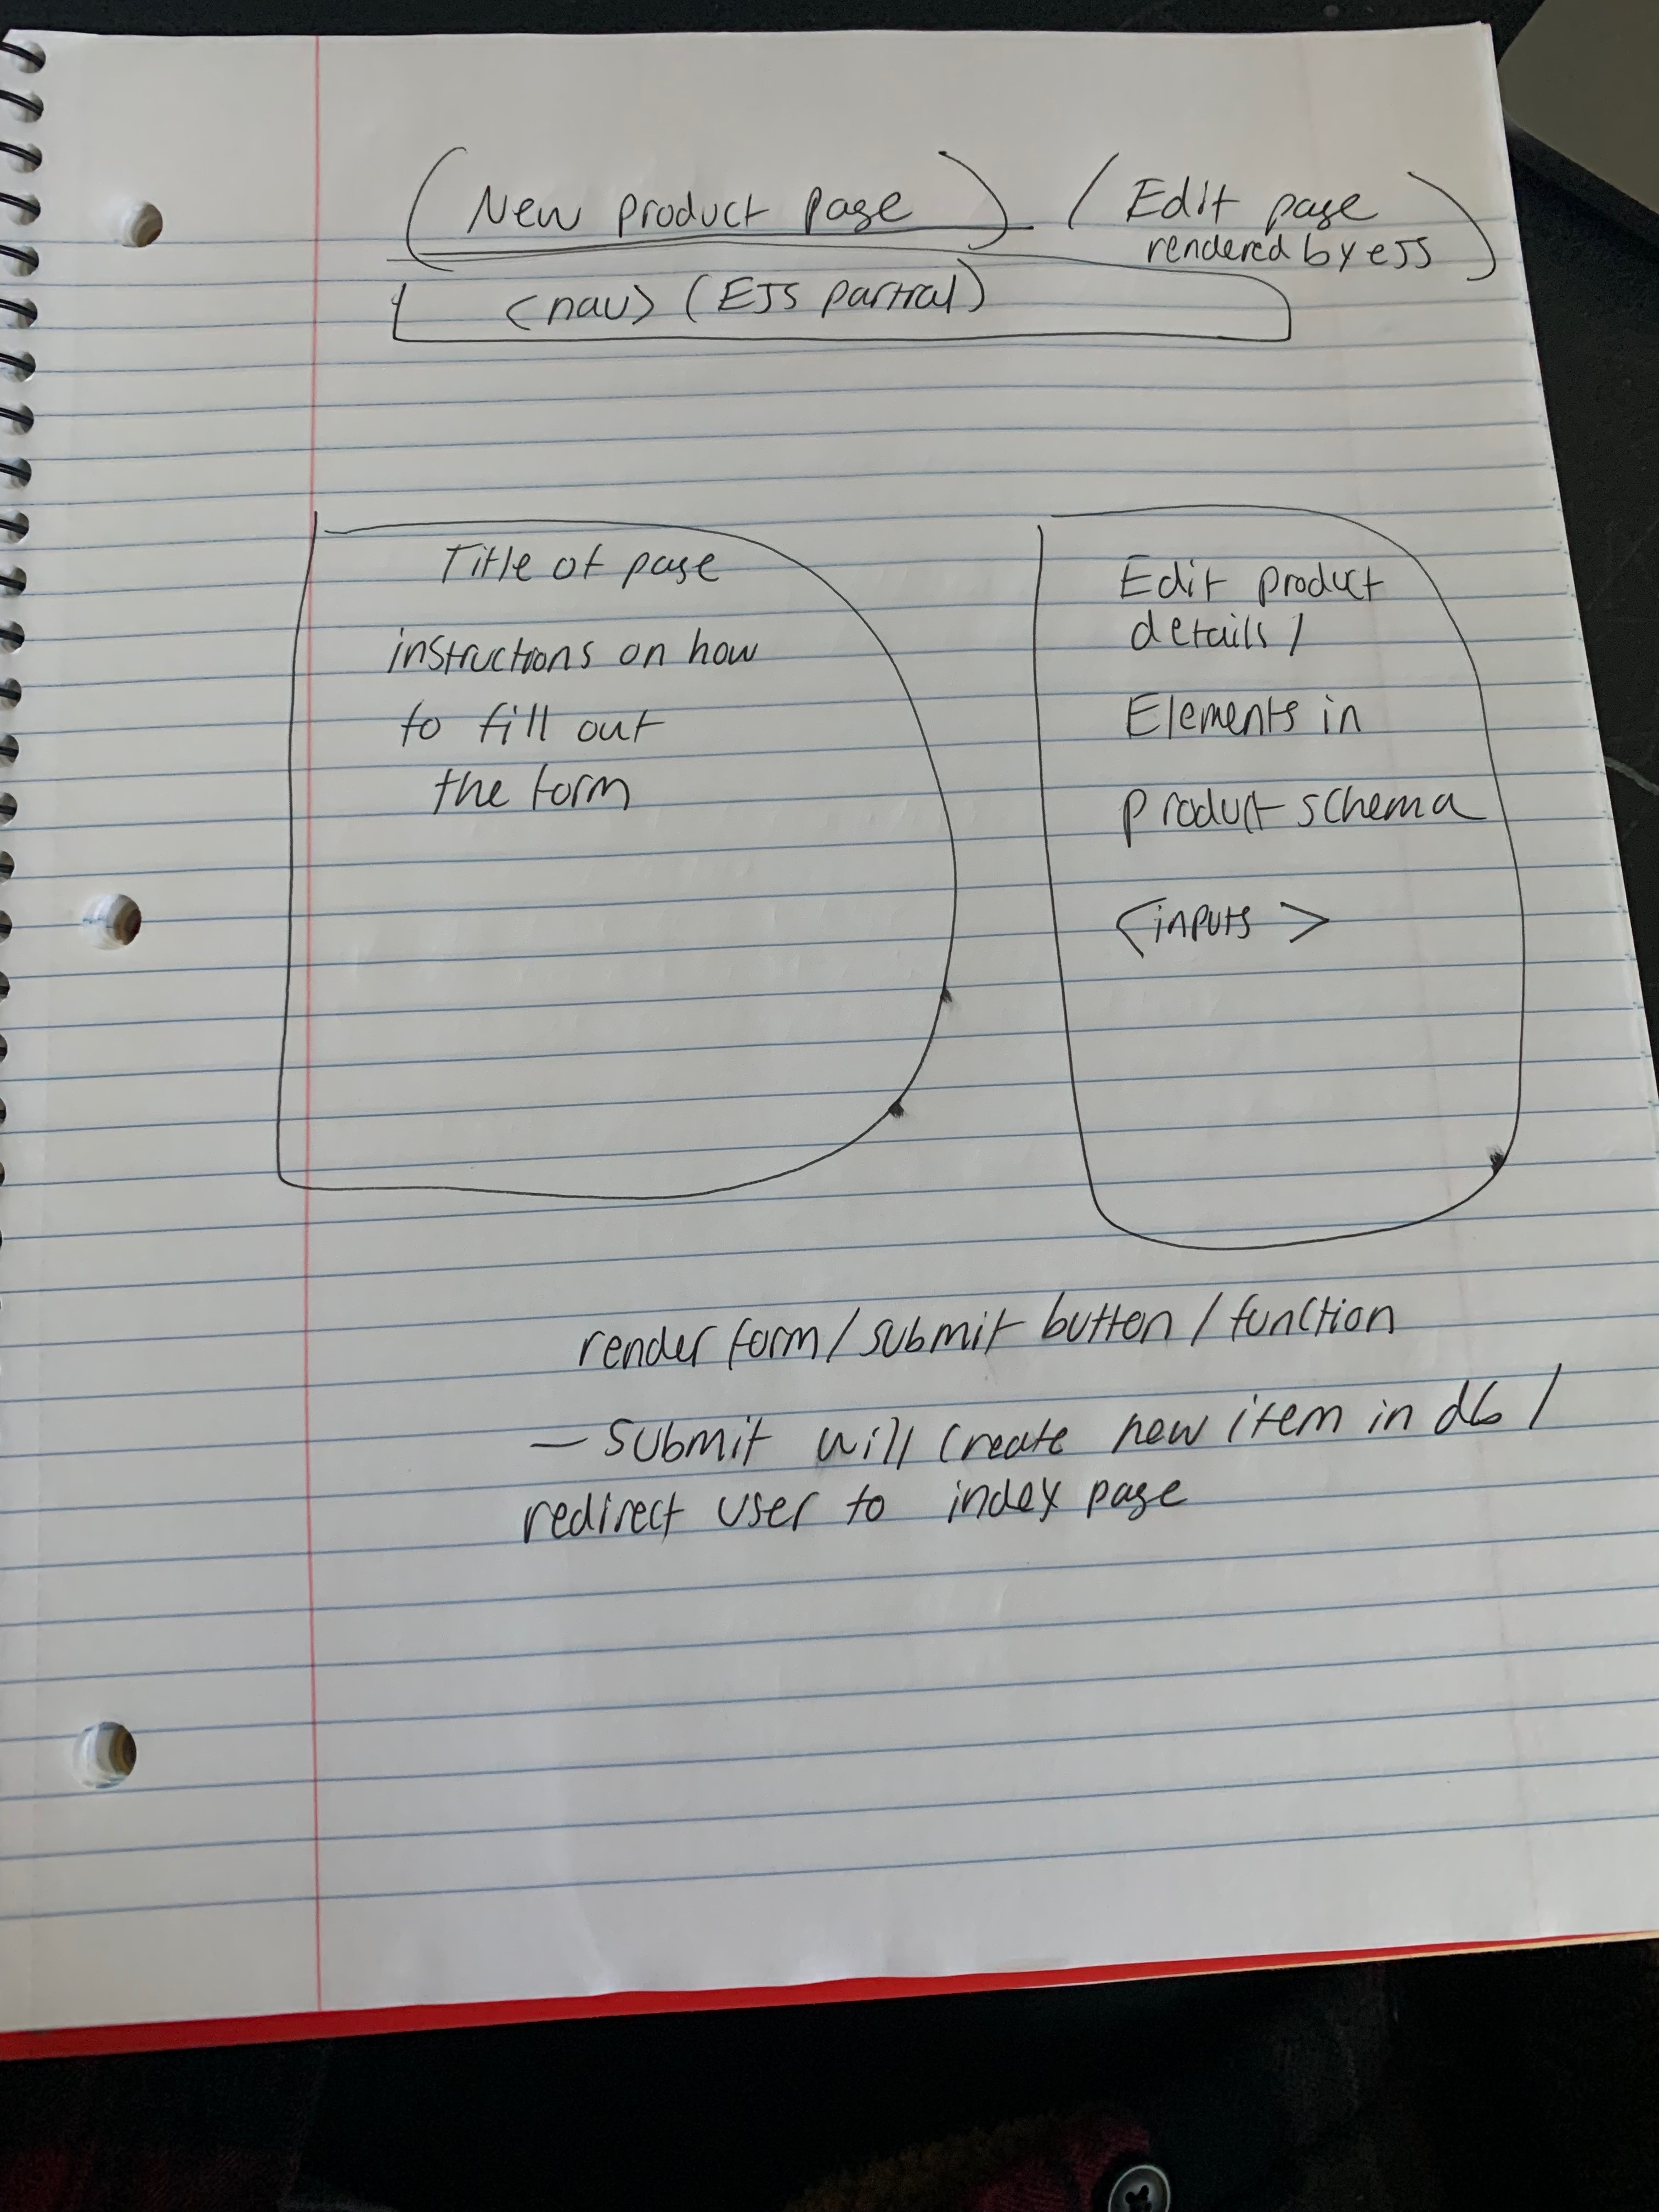 (New product page) / Edit page
rendered by ejs)
<nav> (EJS partial)
Title of page
instructions on how
to fill out
the form
Edit product
details /
Elements in
product schema
<inputs>
render form / submit button / function
— Submit will create new item in db /
redirect user to index page